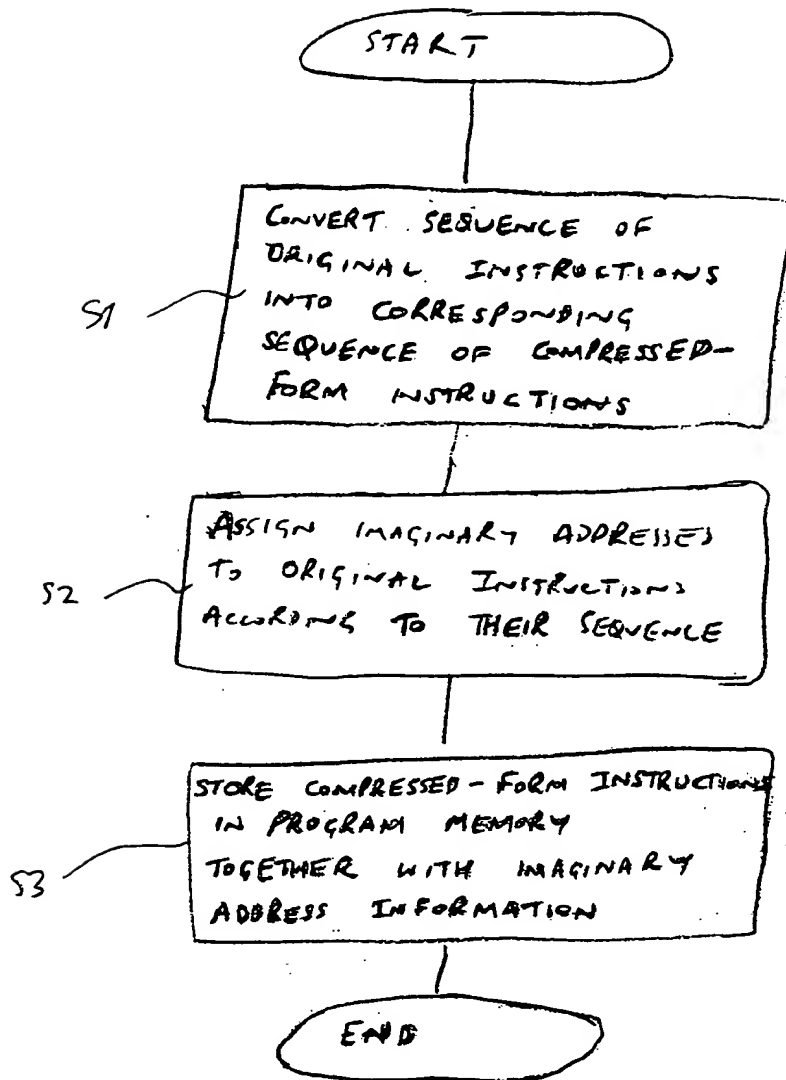 START
CONVERT SEQUENCE OF
ORIGINAL INSTRUCTIONS
INTO CORRESPONDING
SEQUENCE OF COMPRESSED-
FORM INSTRUCTIONS
S1
ASSIGN IMAGINARY ADDRESSES
TO ORIGINAL INSTRUCTIONS
ACCORDING TO THEIR SEQUENCE
S2
STORE COMPRESSED-FORM INSTRUCTIONS
IN PROGRAM MEMORY
TOGETHER WITH IMAGINARY
ADDRESS INFORMATION
S3
END